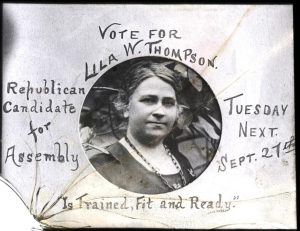 VOTE FOR
LILA W. THOMPSON.
Republican
Candidate
for
Assembly
TUESDAY
NEXT.
SEPT. 27th
"Is Trained, Fit and Ready."